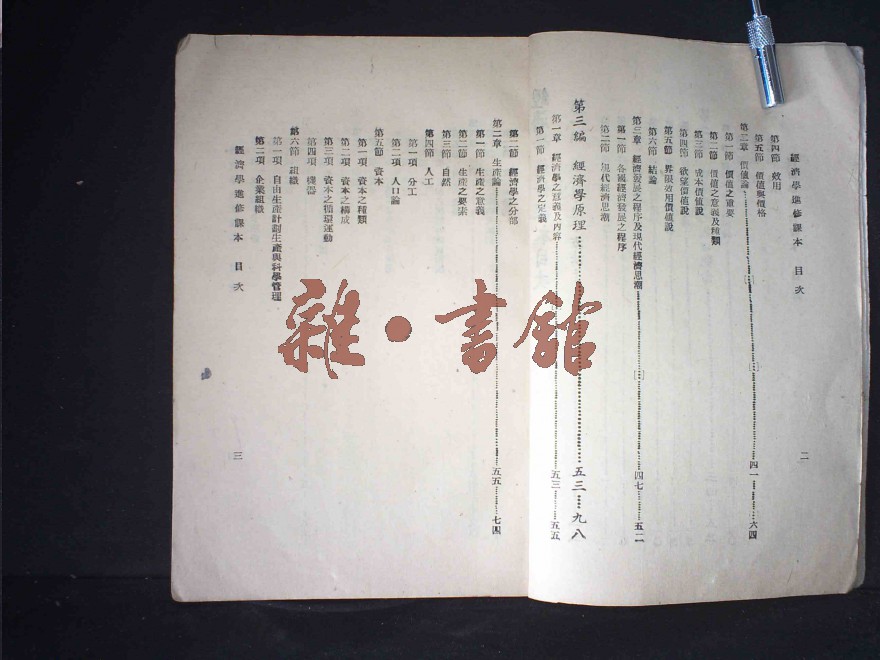 經濟學進修課本 目次
二
第四節 效用
第五節 價值與價格
第二章 價值論……四一……六四
第一節 價值之重要
第二節 價值之意義及種類
第三節 成本價值說
第四節 欲望價值說
第五節 界限效用價值說
第六節 結論
第三章 經濟發展之程序及現代經濟思潮……四七……五二
第一節 各國經濟發展之程序
第二節 現代經濟思潮
第三編 經濟學原理……五三……九八
第一章 經濟學之意義及內容……五三……五五
第一節 經濟學之定義
第二節 經濟學之分部
第二章 生產論……五五……七四
第一節 生產之意義
第二節 生產之要素
第三節 自然
第四節 人工
第一項 分工
第二項 人口論
第五節 資本
第一項 資本之種類
第二項 資本之構成
第三項 資本之循環運動
第四項 機器
第六節 組織
第一項 自由生產計劃生產與科學管理
第二項 企業組織
經濟學進修課本 目次
三
雜·書館